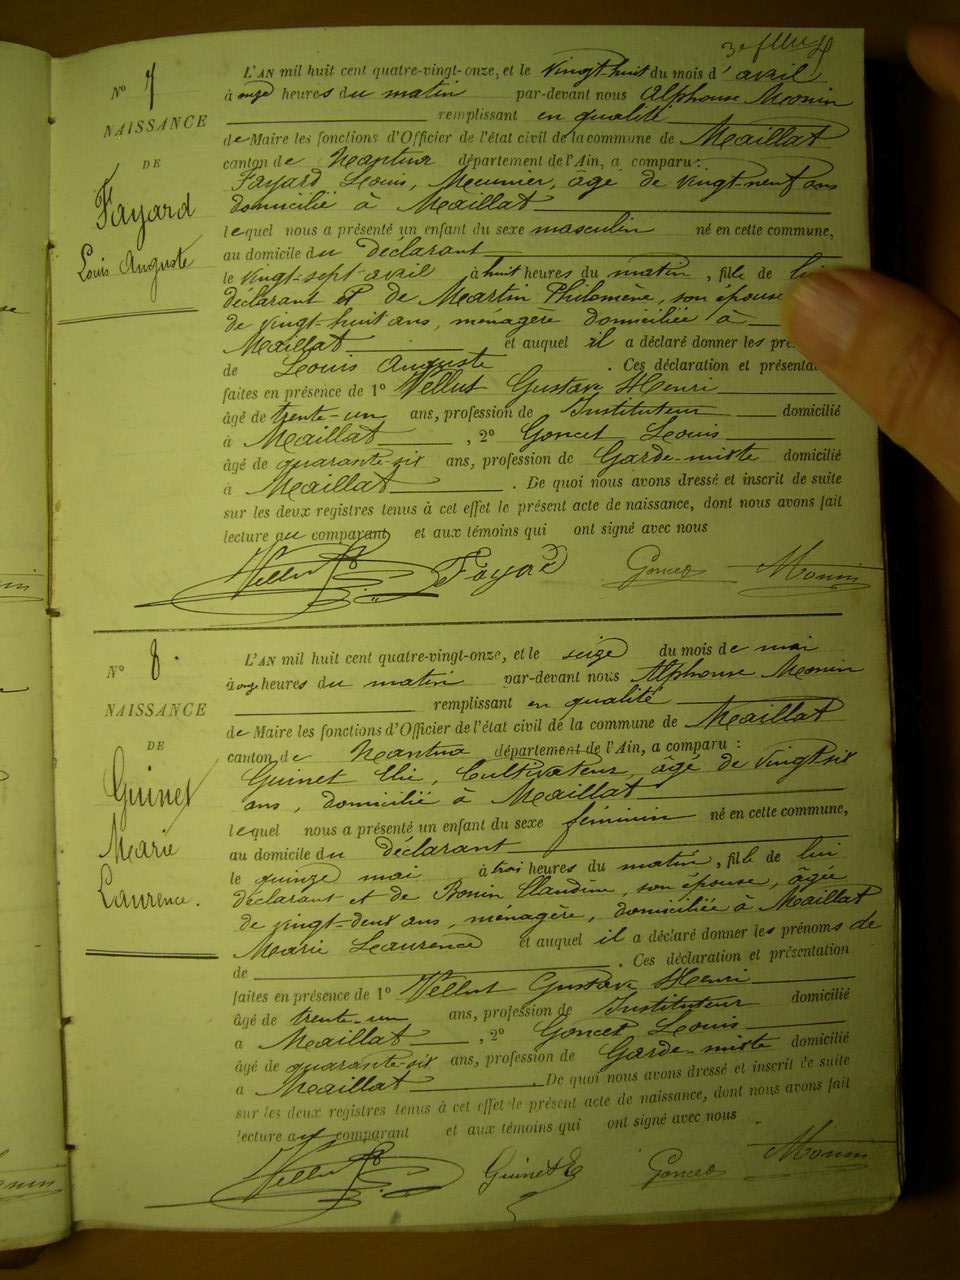 3e feuillet
N° 7
NAISSANCE
DE
Fayard
Louis Auguste
L'AN mil huit cent quatre-vingt-onze, et le vingt-huit du mois d'avril
à onze heures du matin par-devant nous Alphonse Monin
remplissant en qualité
de Maire les fonctions d'Officier de l'état civil de la commune de Maillat
canton de Nantua département de l'Ain, a comparu :
Fayard Louis, Meunier, âgé de vingt-neuf ans
domicilié à Maillat
lequel nous a présenté un enfant du sexe masculin né en cette commune,
au domicile du déclarant
le vingt-sept avril à huit heures du matin, fils de lui
déclarant et de Martin Philomène, son épouse
de vingt-huit ans, ménagère domiciliée à
Maillat et auquel il a déclaré donner les pré
de Louis Auguste . Ces déclaration et présentat
faites en présence de 1° Vellut Gustave Henri
âgé de trente-un ans, profession de Instituteur domicilié
à Maillat , 2° Goncet Louis
âgé de quarante-six ans, profession de Garde-mixte domicilié
à Maillat . De quoi nous avons dressé et inscrit de suite
sur les deux registres tenus à cet effet le présent acte de naissance, dont nous avons fait
lecture au comparant et aux témoins qui ont signé avec nous
Vellut Fayard Goncet Monin
N° 8.
NAISSANCE
DE
Guinet
Marie
Laurence.
L'AN mil huit cent quatre-vingt-onze, et le seize du mois de mai
à onze heures du matin par-devant nous Alphonse Monin
remplissant en qualité
de Maire les fonctions d'Officier de l'état civil de la commune de Maillat
canton de Nantua département de l'Ain, a comparu :
Guinet Elie, Cultivateur, âgé de vingt six
ans, domicilié à Maillat
lequel nous a présenté un enfant du sexe féminin né en cette commune,
au domicile du déclarant
le quinze mai à trois heures du matin, fille de lui
déclarant et de Bonin Claudine, son épouse, âgée
de vingt-deux ans, ménagère, domiciliée à Maillat
Marie Laurence et auquel il a déclaré donner les prénoms de
de . Ces déclaration et présentation
faites en présence de 1° Vellut Gustave Henri
âgé de trente-un ans, profession de Instituteur domicilié
a Maillat , 2° Goncet Louis
âgé de quarante-six ans, profession de Garde-mixte domicilié
a Maillat . De quoi nous avons dressé et inscrit de suite
sur les deux registres tenus à cet effet le présent acte de naissance, dont nous avons fait
lecture au comparant et aux témoins qui ont signé avec nous
Vellut Guinet E Goncet Monin